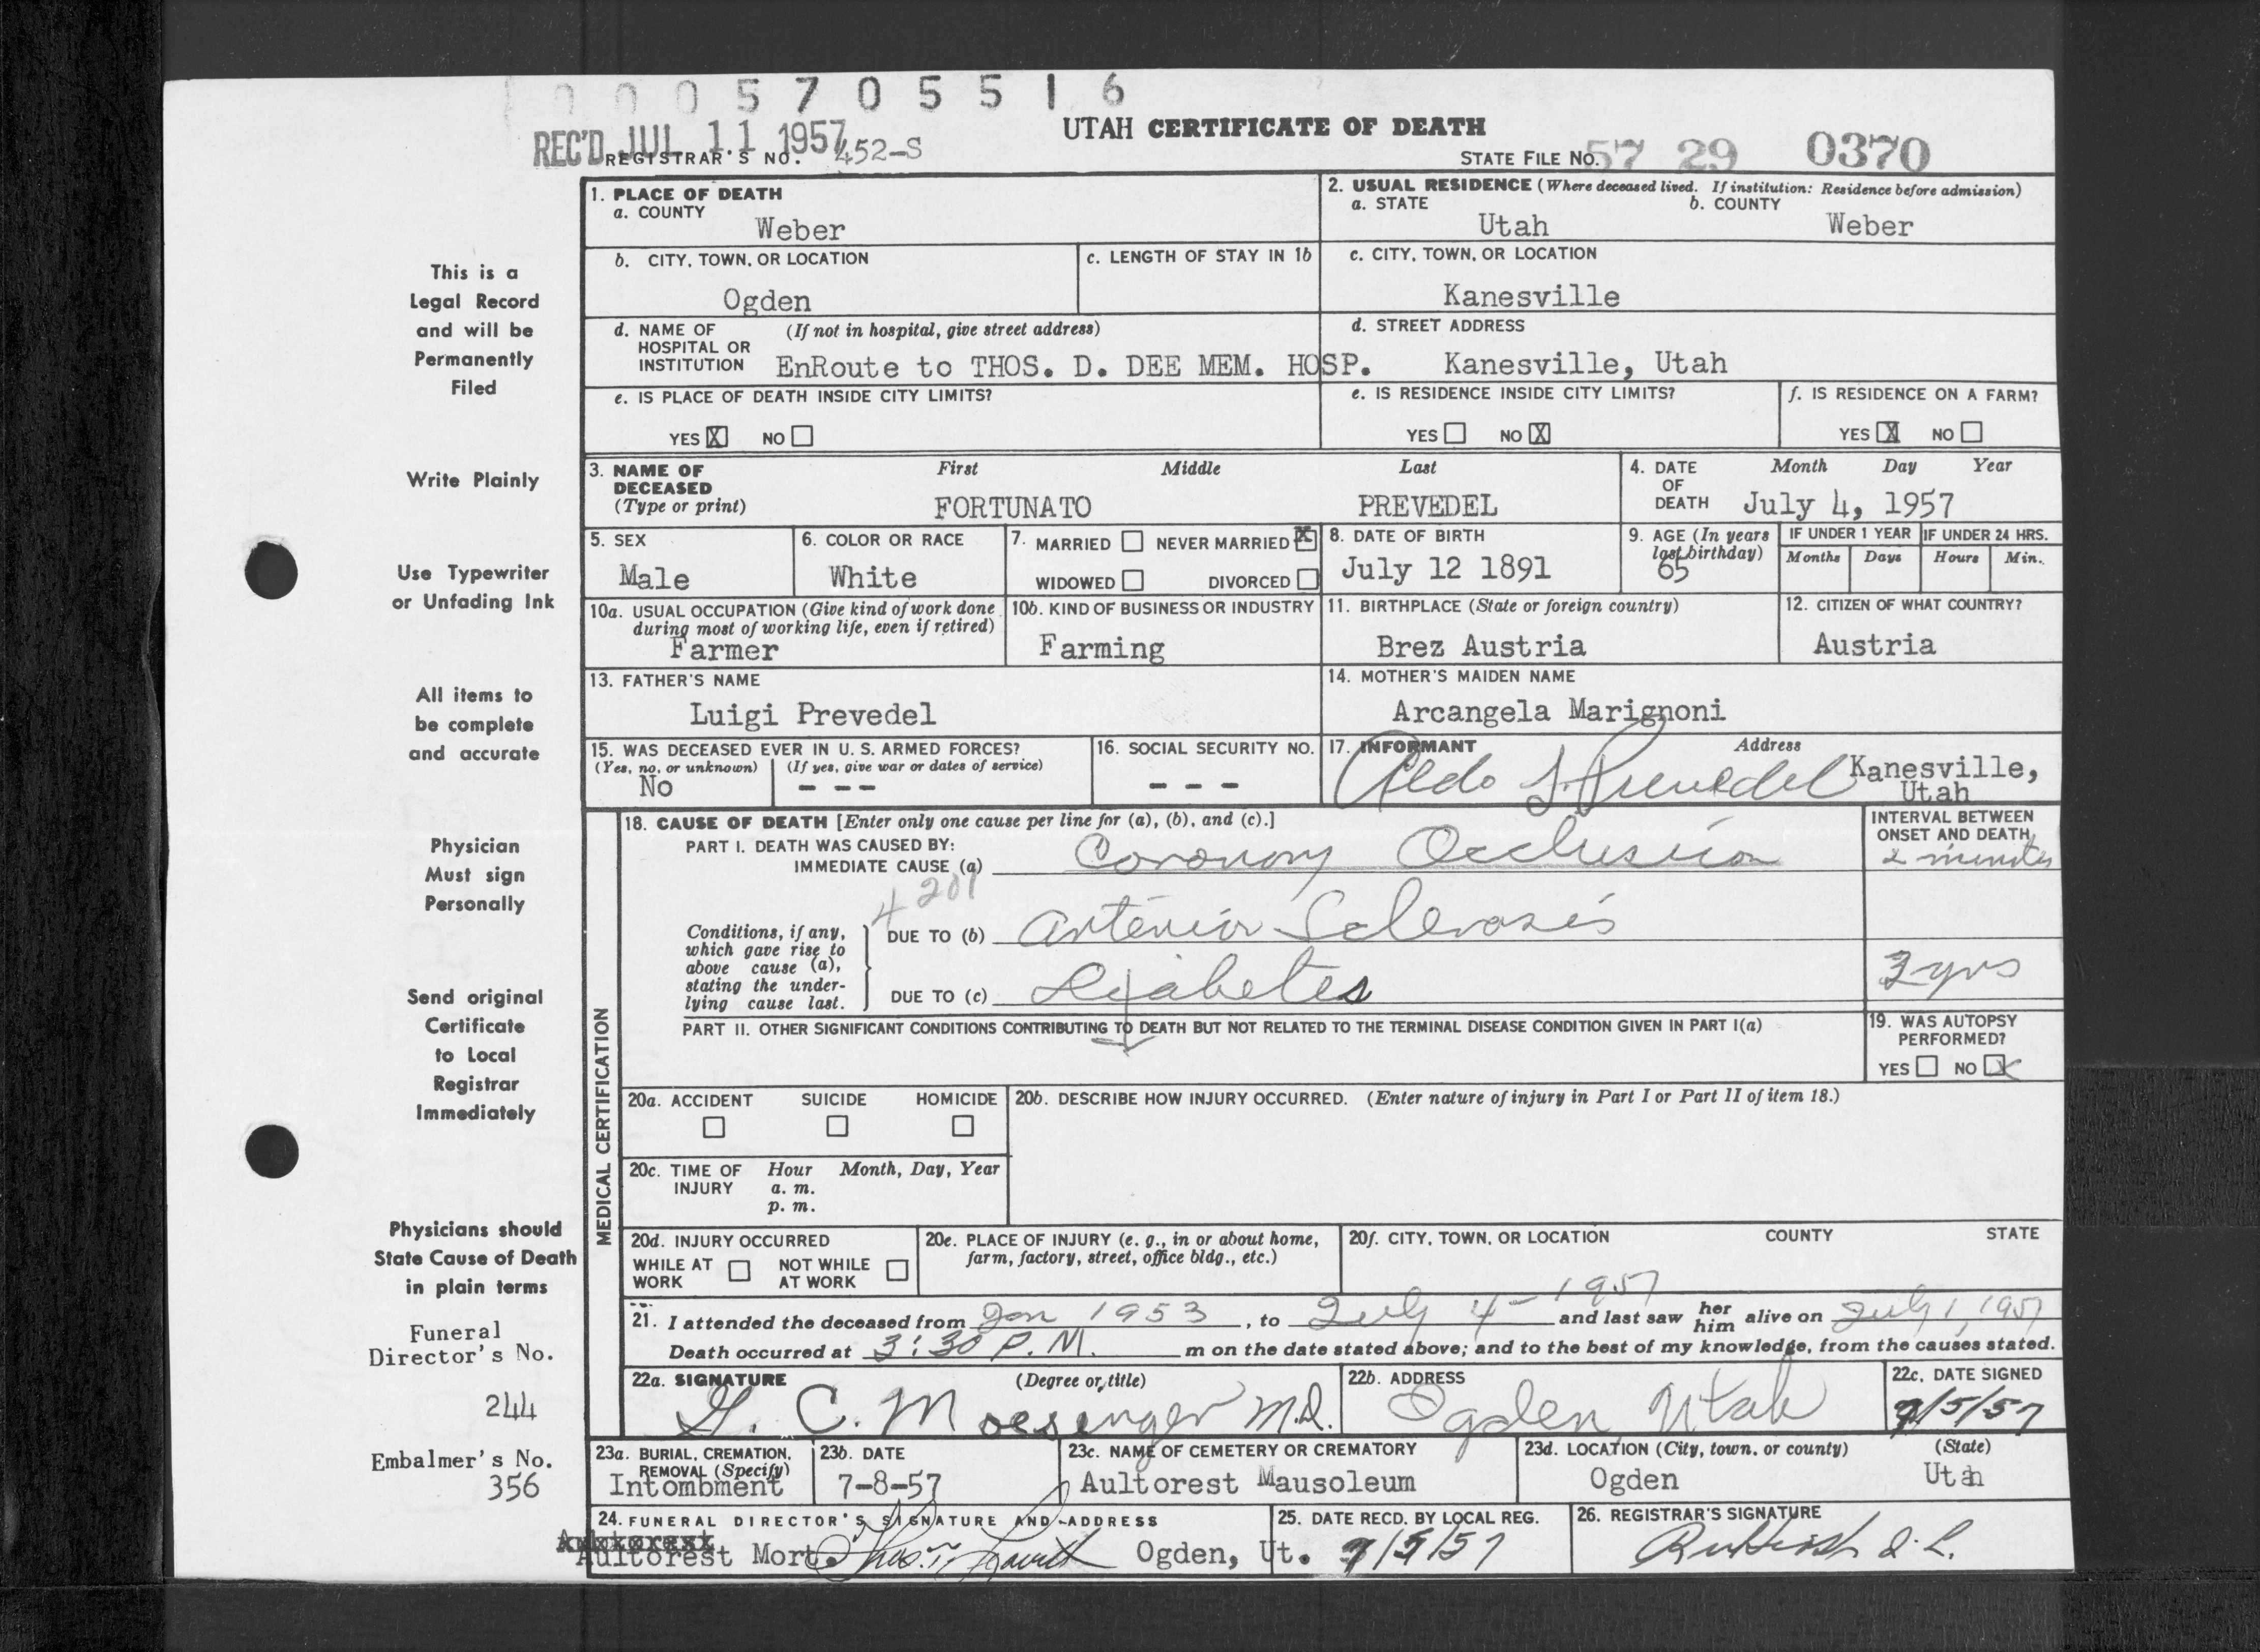 0005705516
REC'D JUL 11 1957
UTAH CERTIFICATE OF DEATH
REGISTRAR'S NO. 452-S
STATE FILE NO. 57 29 0370
This is a
Legal Record
and will be
Permanently
Filed
Write Plainly
Use Typewriter
or Unfading Ink
All items to
be complete
and accurate
Physician
Must sign
Personally
Send original
Certificate
to Local
Registrar
Immediately
Physicians should
State Cause of Death
in plain terms
Funeral
Director's No.
244
Embalmer's No.
356
1. PLACE OF DEATH
a. COUNTY
Weber
2. USUAL RESIDENCE (Where deceased lived. If institution: Residence before admission)
a. STATE b. COUNTY
Utah Weber
b. CITY, TOWN, OR LOCATION
Ogden
c. LENGTH OF STAY IN 1b
c. CITY, TOWN, OR LOCATION
Kanesville
d. NAME OF (If not in hospital, give street address)
HOSPITAL OR
INSTITUTION EnRoute to THOS. D. DEE MEM. HOSP.
d. STREET ADDRESS
Kanesville, Utah
e. IS PLACE OF DEATH INSIDE CITY LIMITS?
YES X NO
e. IS RESIDENCE INSIDE CITY LIMITS?
YES NO X
f. IS RESIDENCE ON A FARM?
YES X NO
3. NAME OF First Middle Last
DECEASED
(Type or print) FORTUNATO PREVEDEL
4. DATE Month Day Year
OF
DEATH July 4, 1957
5. SEX
Male
6. COLOR OR RACE
White
7. MARRIED NEVER MARRIED X
WIDOWED DIVORCED
8. DATE OF BIRTH
July 12 1891
9. AGE (In years
last birthday)
65
IF UNDER 1 YEAR IF UNDER 24 HRS.
Months Days Hours Min.
10a. USUAL OCCUPATION (Give kind of work done
during most of working life, even if retired)
Farmer
10b. KIND OF BUSINESS OR INDUSTRY
Farming
11. BIRTHPLACE (State or foreign country)
Brez Austria
12. CITIZEN OF WHAT COUNTRY?
Austria
13. FATHER'S NAME
Luigi Prevedel
14. MOTHER'S MAIDEN NAME
Arcangela Marignoni
15. WAS DECEASED EVER IN U. S. ARMED FORCES?
(Yes, no, or unknown) (If yes, give war or dates of service)
No - - -
16. SOCIAL SECURITY NO.
- - -
17. INFORMANT Address
Aldo J. Prevedel Kanesville,
Utah
MEDICAL CERTIFICATION
18. CAUSE OF DEATH [Enter only one cause per line for (a), (b), and (c).]
PART I. DEATH WAS CAUSED BY:
IMMEDIATE CAUSE (a) Coronary Occlusion
INTERVAL BETWEEN
ONSET AND DEATH
2 minutes
4201
Conditions, if any,
which gave rise to
above cause (a),
stating the under-
lying cause last.
DUE TO (b) Arterior Sclerosis
DUE TO (c) Diabetes
3 yrs
PART II. OTHER SIGNIFICANT CONDITIONS CONTRIBUTING TO DEATH BUT NOT RELATED TO THE TERMINAL DISEASE CONDITION GIVEN IN PART I(a)
19. WAS AUTOPSY
PERFORMED?
YES NO X
20a. ACCIDENT SUICIDE HOMICIDE
20b. DESCRIBE HOW INJURY OCCURRED. (Enter nature of injury in Part I or Part II of item 18.)
20c. TIME OF Hour Month, Day, Year
INJURY a. m.
p. m.
20d. INJURY OCCURRED
WHILE AT NOT WHILE
WORK AT WORK
20e. PLACE OF INJURY (e. g., in or about home,
farm, factory, street, office bldg., etc.)
20f. CITY, TOWN, OR LOCATION COUNTY STATE
21. I attended the deceased from Jan 1953, to July 4 - 1957 and last saw her him alive on July 1, 1957
Death occurred at 3:30 P.M. m on the date stated above; and to the best of my knowledge, from the causes stated.
22a. SIGNATURE (Degree or title)
G. C. Moesinger M.D.
22b. ADDRESS
Ogden, Utah
22c. DATE SIGNED
7/5/57
23a. BURIAL, CREMATION,
REMOVAL (Specify)
Intombment
23b. DATE
7-8-57
23c. NAME OF CEMETERY OR CREMATORY
Aultorest Mausoleum
23d. LOCATION (City, town, or county) (State)
Ogden Utah
24. FUNERAL DIRECTOR'S SIGNATURE AND ADDRESS
Aultorest Mort. Ogden, Ut.
25. DATE RECD. BY LOCAL REG.
7/5/57
26. REGISTRAR'S SIGNATURE